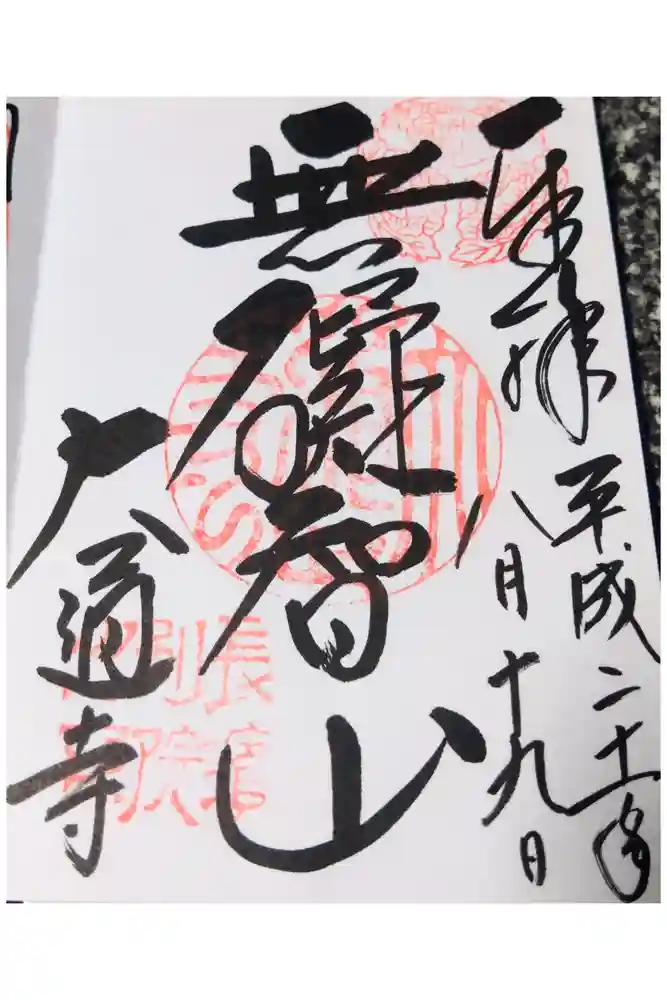 奉拝
平成二十一年
八月十九日
無礙智山
大通寺